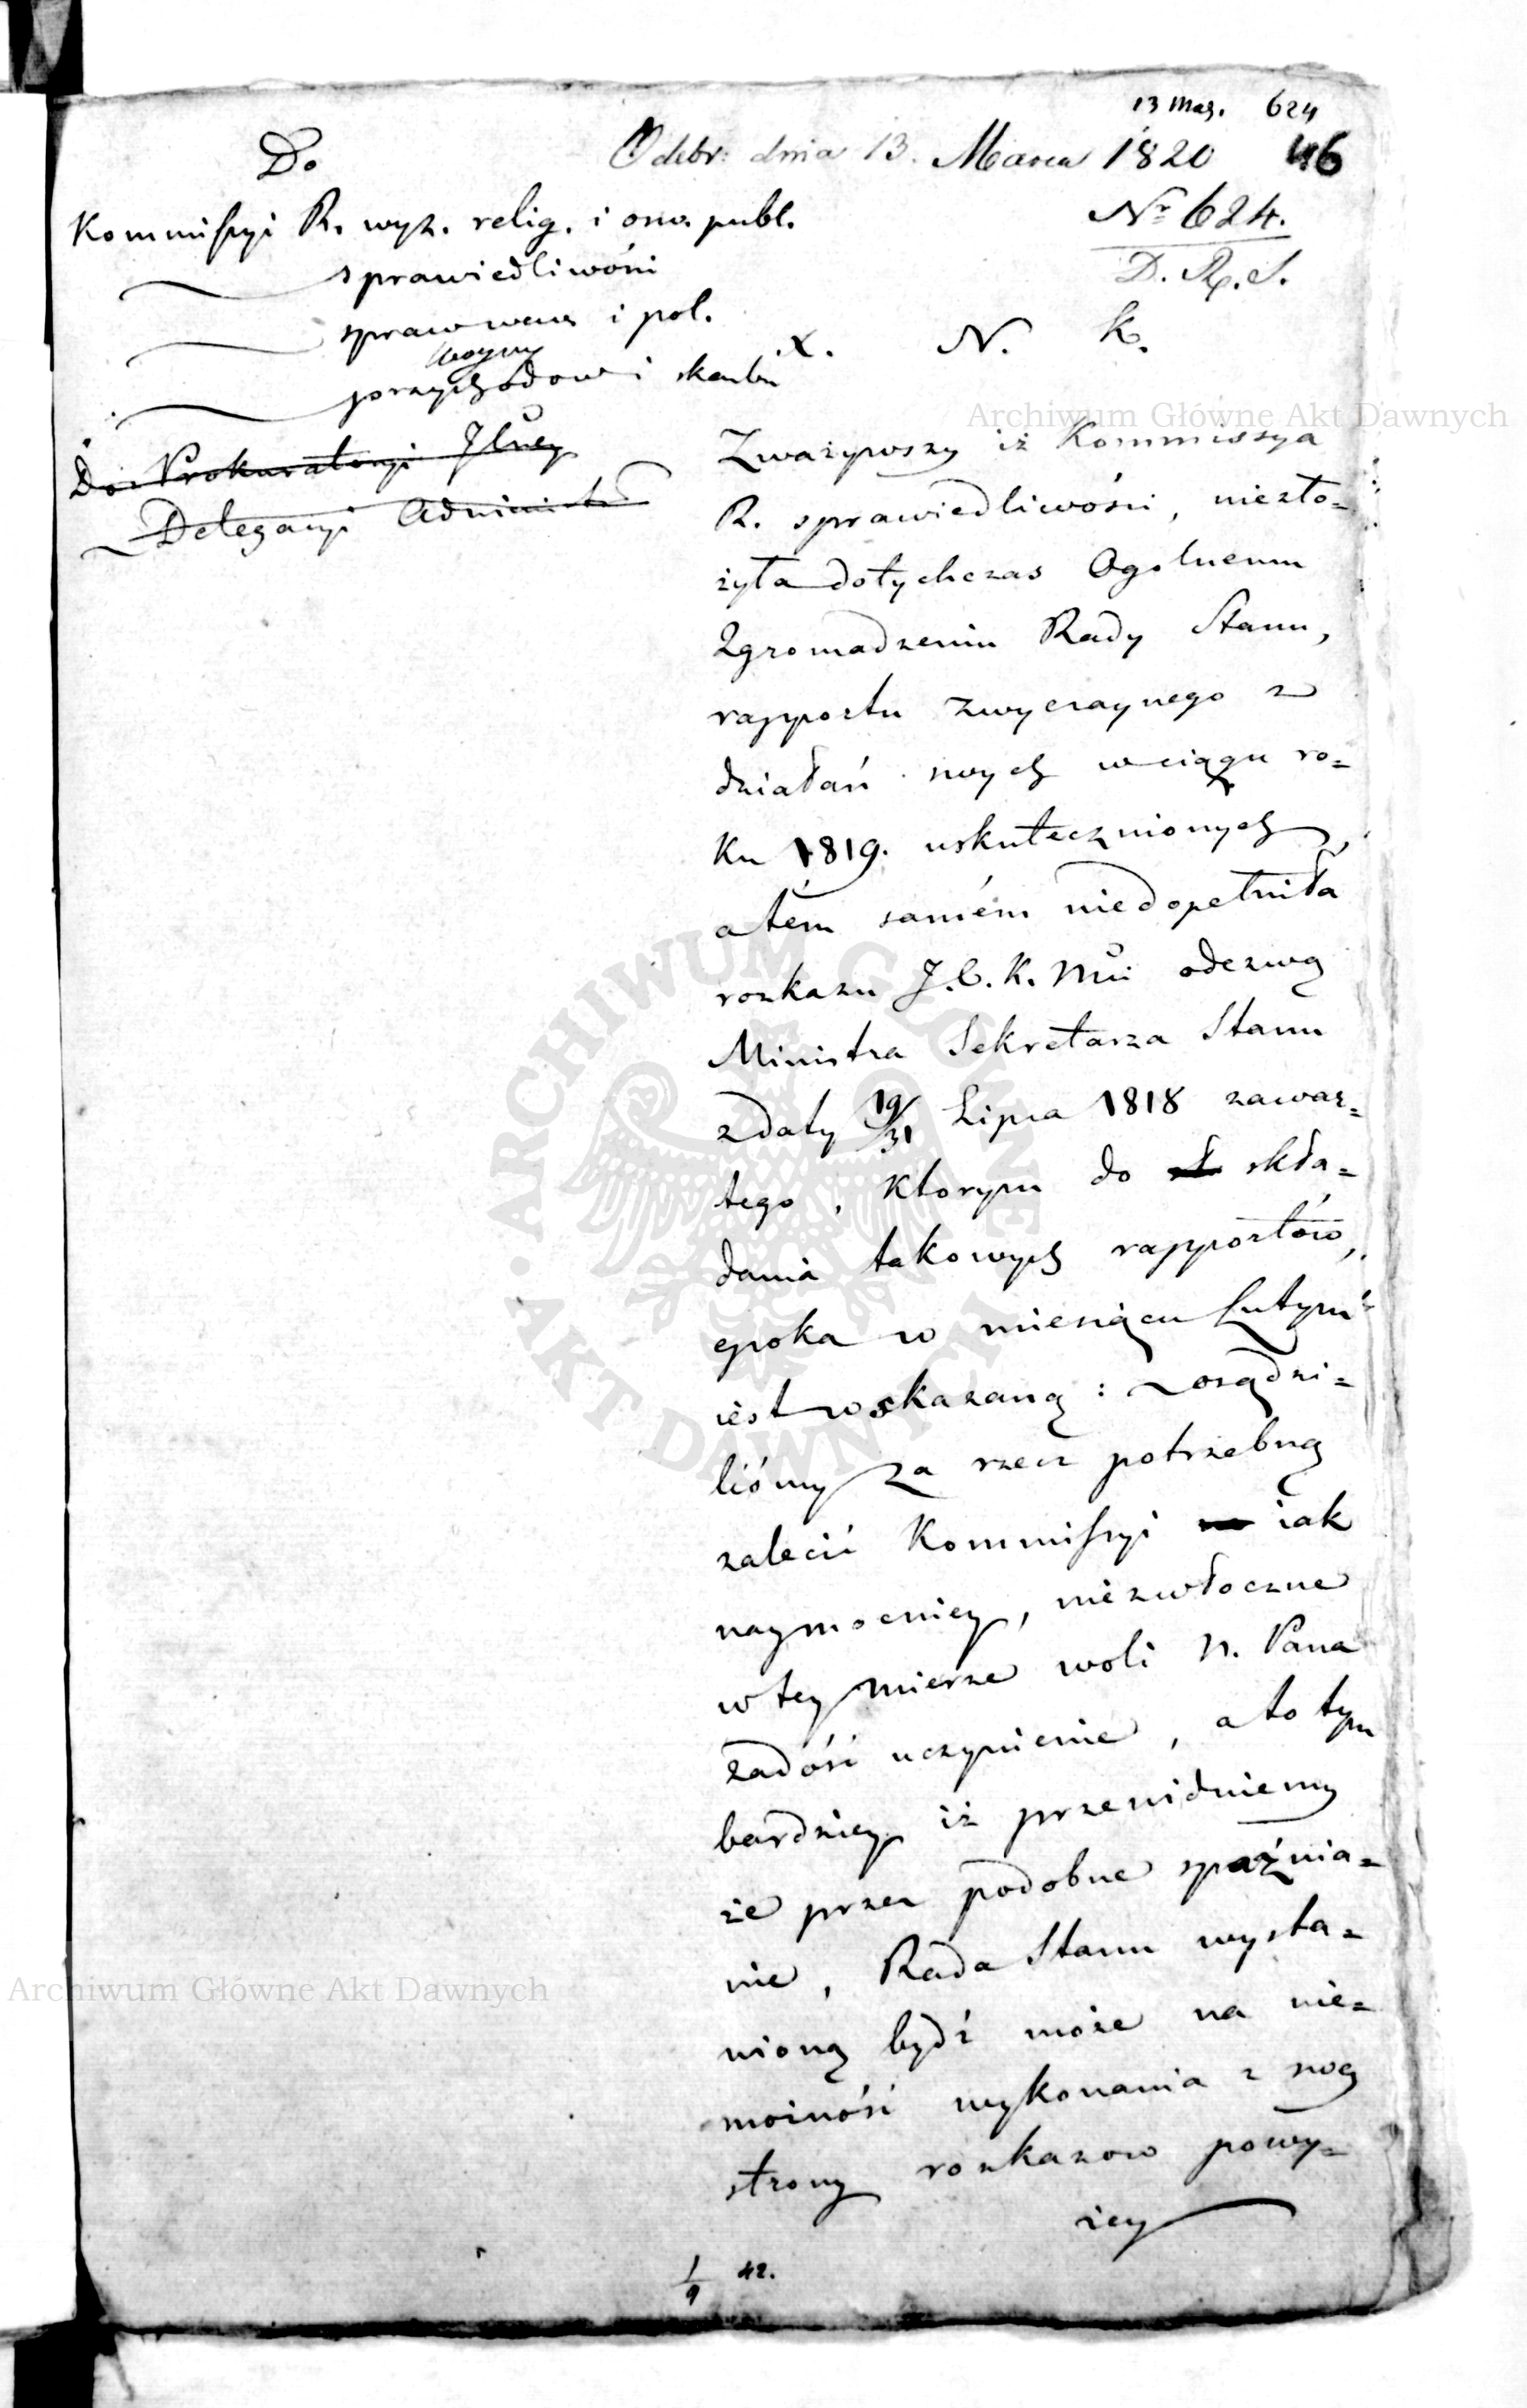 13 Marz. 624
Odebr: dnia 13. Marca 1820 46
Nr 624.
D. R. S.
Do
Kommissyi R. wyz. relig. i osw. publ.
sprawiedliwości
spraw wew. i pol.
woyny
przychodow i skarbu
Do Prokuratoryi Jlney
Delegacyi Administr
X. N. K.
Zważywszy iż Kommissya
R. sprawiedliwości, niezło=
żyła dotychczas Ogolnemu
Zgromadzeniu Rady Stanu,
rapportu zwyczaynego z
działań swych w ciągu ro=
ku 1819. uskutecznionych,
a tém samém niedopełniła
rozkazu J. C. K. Mci odezwą
Ministra Sekretarza Stanu
z daty 19/31 Lipca 1818 zawar=
tego, ktorym do skła=
dania takowych rapportów,
epoka w miesiącu Lutym
iest wskazaną: osądzi=
liśmy za rzecz potrzebną
zalecić Kommissyi iak
naymocniey, niezwłoczne
w tey mierze woli N. Pana
zadość uczynienie, a to tym
bardziey iż przewiduiemy
że przez podobne spaźnia=
nie, Rada Stanu wysta=
wioną bydź może na nie=
możność wykonania z swey
strony rozkazow powy=
żey
1/9 42.
Archiwum Główne Akt Dawnych
ARCHIWUM GŁÓWNE AKT DAWNYCH
Archiwum Główne Akt Dawnych